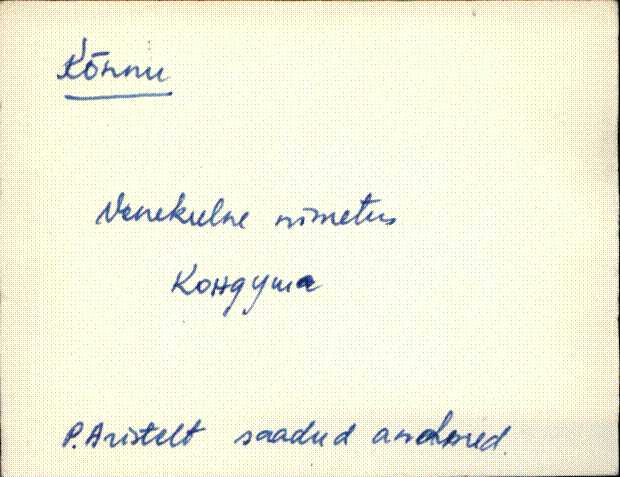 Kõnnu
Venekeelne nimetus
Кондуша
P. Aristelt saadud andmed.